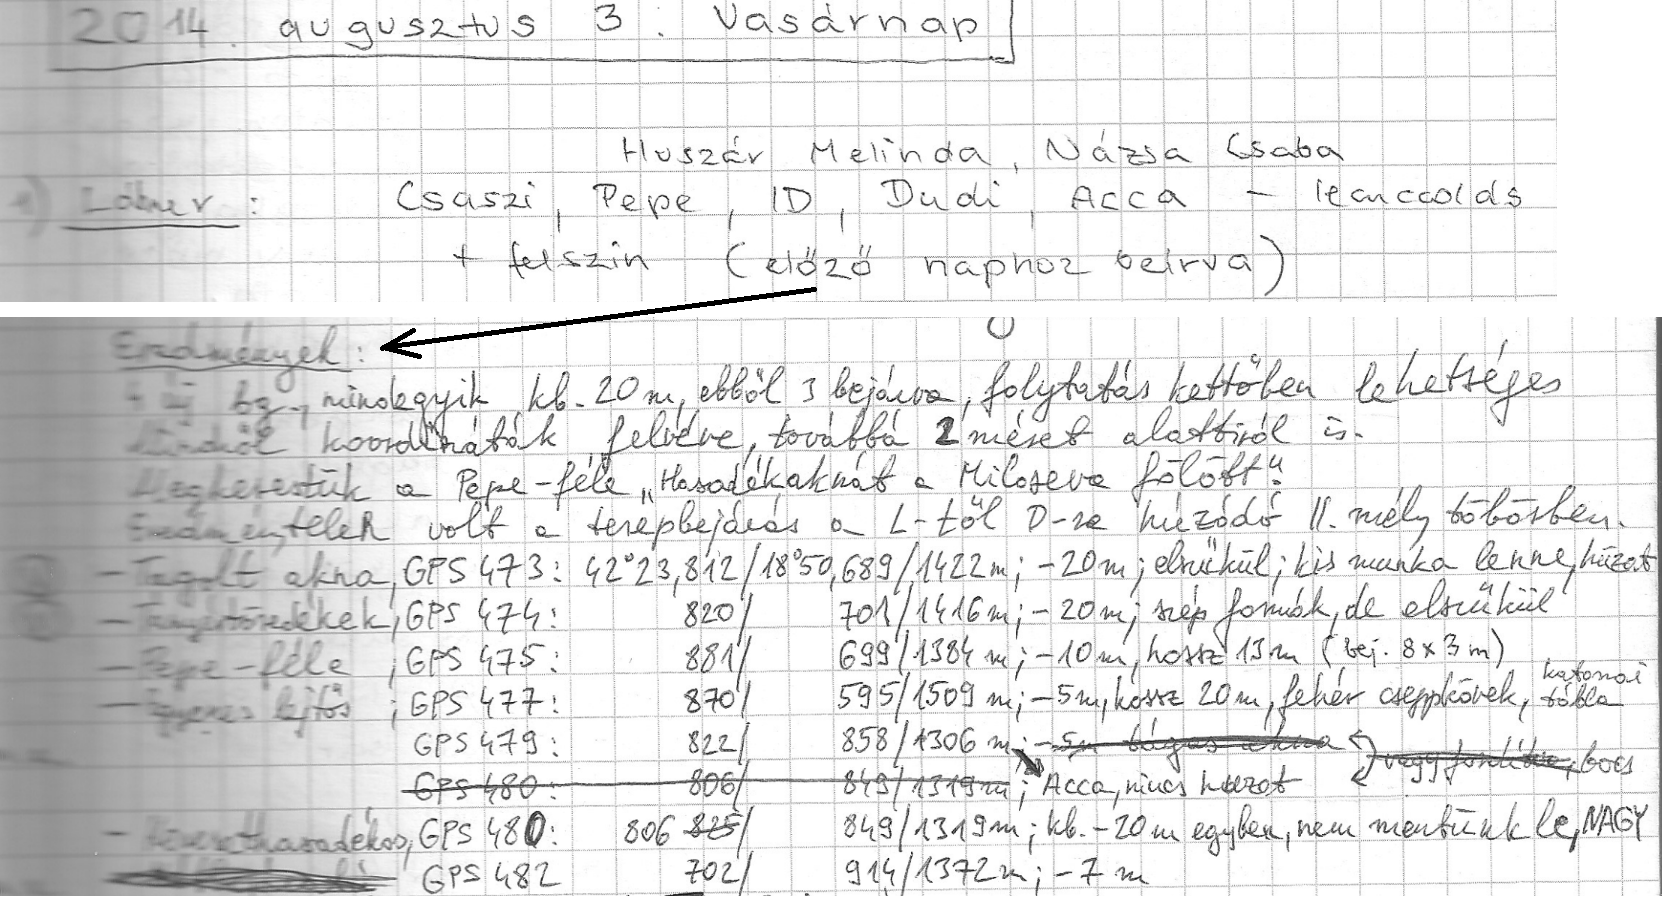 2014. augusztus 3. Vasárnap
Huszár Melinda, Názsa Csaba
1) Lóbner: Csaszi, Pepe, ID, Dudi, Acca –
+ felszín (előző naphoz beírva)
Eredmények:
4 új bg., mindegyik kb. 20 m, ebből 3 bejárva, folytatás kettőben lehetséges
Mindről koordináták felvéve, továbbá 2 méret alattiról is.
Megkerestük a Pepe-féle „Hasadékaknát a Miloseva fölött".
Eredménytelen volt a terepbejárás a L-től D-re húzódó II. mély töbörben.
- Tagolt akna, GPS 473: 42°23,812/18°50,689/1422 m; -20 m; elszűkül; kis munka lenne, húzat
- Tányértöredékek, GPS 474: 820/ 701/1416 m; -20 m; szép formák, de elszűkül
- Pepe-féle ; GPS 475: 881/ 699/1384 m; -10 m, hossz 13 m (bej. 8x3 m)
- Egyenes lejtős ; GPS 477: 870/ 595/1509 m; -5 m, hossz 20 m, fehér cseppkövek, katonai tábla
GPS 479: 822/ 858/1306 m; -5m tágas akna vagy fordítva, bocs
GPS 480: 806/ 849/1319 m; Acca, nincs huzat
- GPS 480: 806 825/ 849/1319 m; kb. -20 m egyben, nem mentünk le, NAGY
GPS 482 702/ 914/1372 m; -7 m